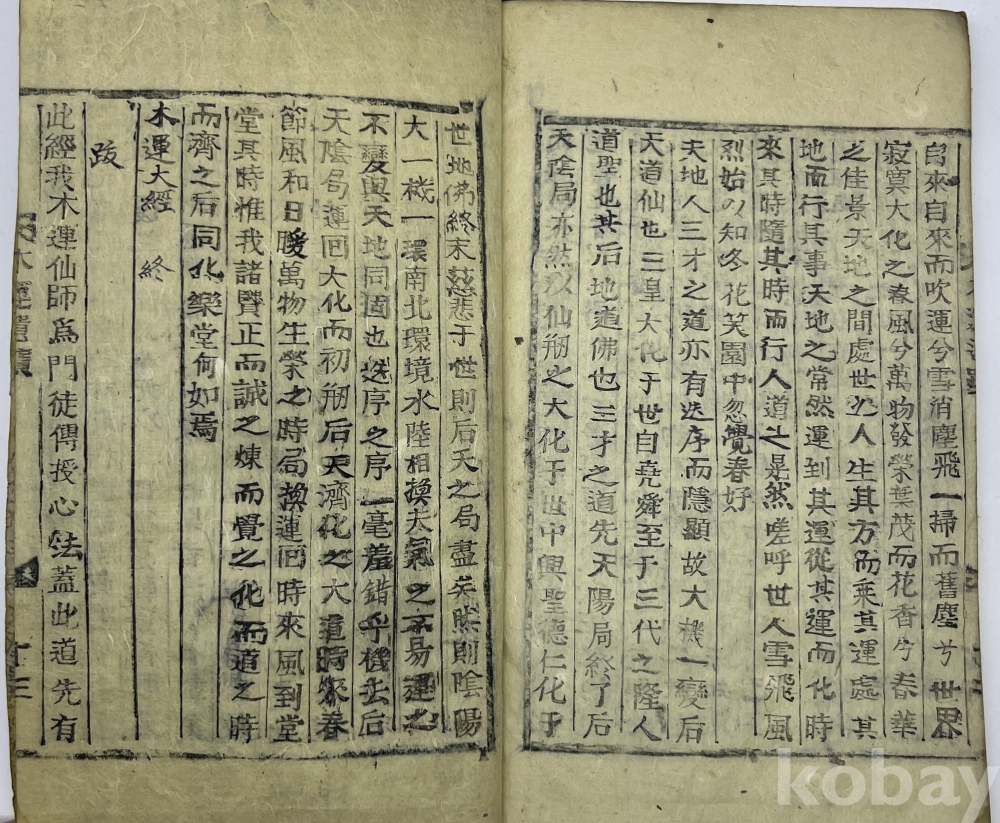 自來自來而吹運兮雪消塵飛一掃而舊塵兮世界
寂寞大化之春風兮萬物發榮葉茂而花香兮春華
之佳景天地之間處世之人生其方而乘其運處其
地而行其事天地之常然運到其運從其運而化時
來其時隨其時而行人道之是然嗟呼世人雪飛風
烈始以知冬花笑園中忽覺春好
夫地人三才之道亦有迭序而隱顯故大機一變后
天道仙也三皇大化于世自堯舜至于三代之隆人
道聖也其后地道佛也三才之道先天陽局終了后
天陰局亦然以仙刱之大化于世中興聖德仁化于
世地佛終末慈悲于世則后天之局盡矣然則陰陽
大一機一環南北環境水陸相換大氣之不易運之
不變與天地同固也迭序之序一毫差錯乎機去后
天陰局運回大化而初刱后天濟化之大道時來春
節風和日暖萬物生榮之時局換運回時來風到堂
堂其時惟我諸賢正而誠之煉而覺之化而道之時
而濟之后同化樂堂何如焉
木運大經 終
跋
此經我木運仙師爲門徒傳授心法蓋此道先有
十三
kobay